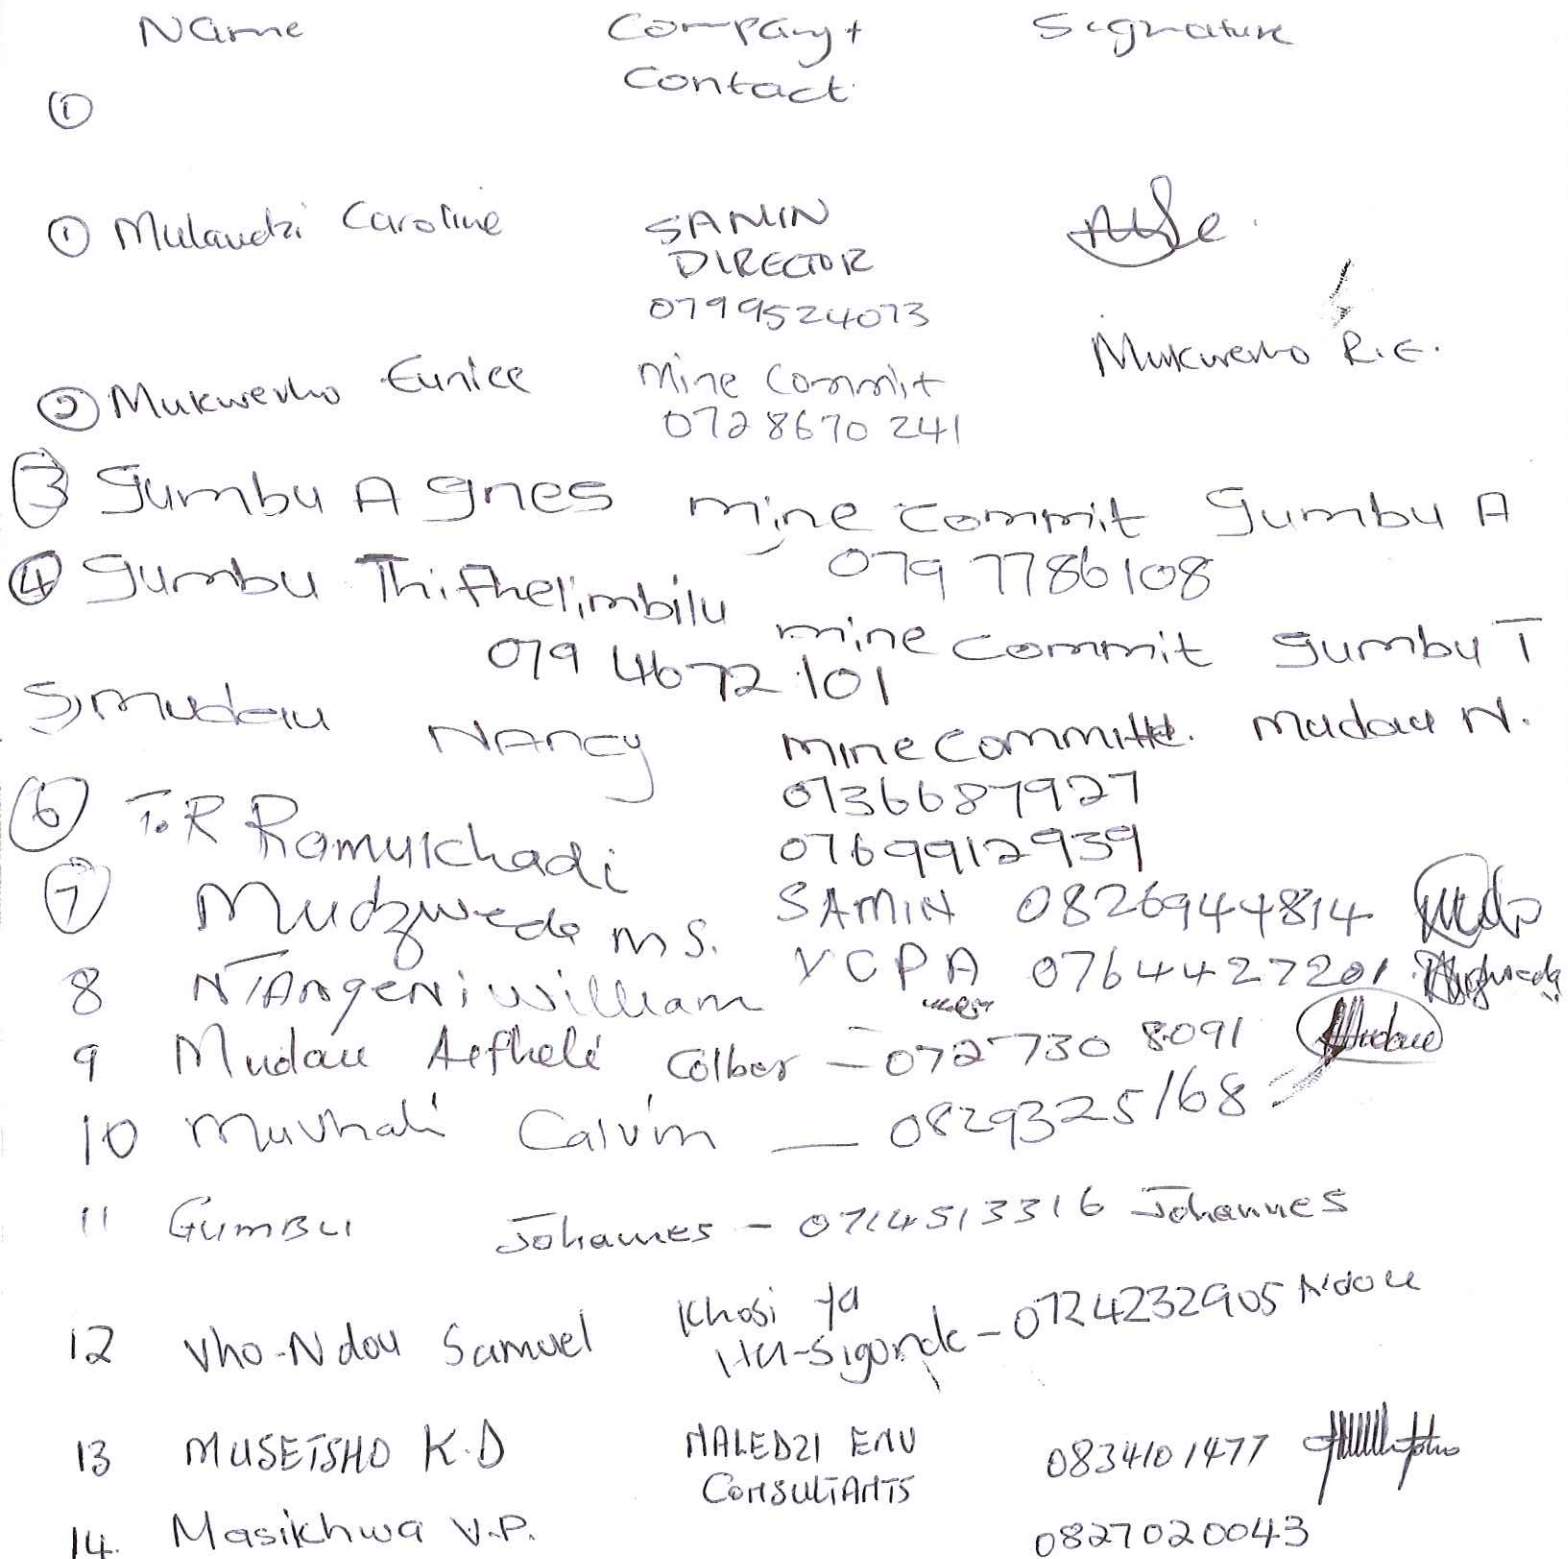 Name Company + Signature
Contact
①
① Mulaudzi Caroline SAMIN
DIRECTOR
0799524073
② Mukwevho Eunice Mine Commit Mukwevho R.E.
072 8670 241
③ Gumbu Agnes mine commit Gumbu A
079 7786108
④ Gumbu Thifhelimbilu mine commit Gumbu T
079 4672 101
5) Mudau Nancy mine committe. Mudau N.
0736687927
⑥ T.R Ramukhadi 0769912939
⑦ Mudzweda M S. SAMIN 0826944814
8 NTAngeni william VCPA 0764427201
9 Mudau Aifheli Colber - 072 730 8091 Mudau
10 Muvhali Calvin — 0829325168
11 GUMBU Johannes - 0714513316 Johannes
12 Vho-Ndou Samuel Khosi ya
HA-Sigonde - 0724232905 Ndou
13 MUSETSHO K.D NALEDZI ENV 0834101477
CONSULTANTS
14. Masikhwa V.P. 0827020043